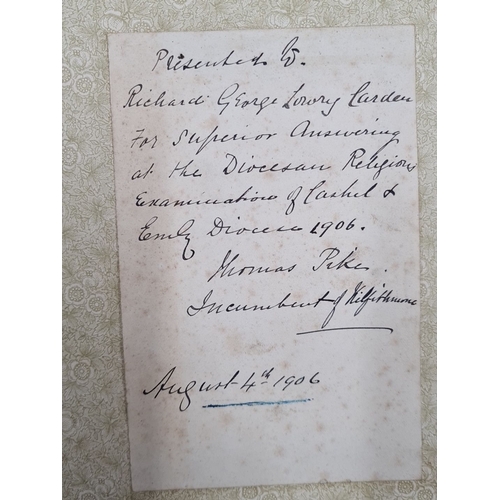 Presented to
Richard George Lowry Carden
For Superior Answering
at the Diocesan Religious
Examination of Cashel &
Emly Diocese 1906.
Thomas Pike.
Incumbent of Kilfithmone
August 4th 1906